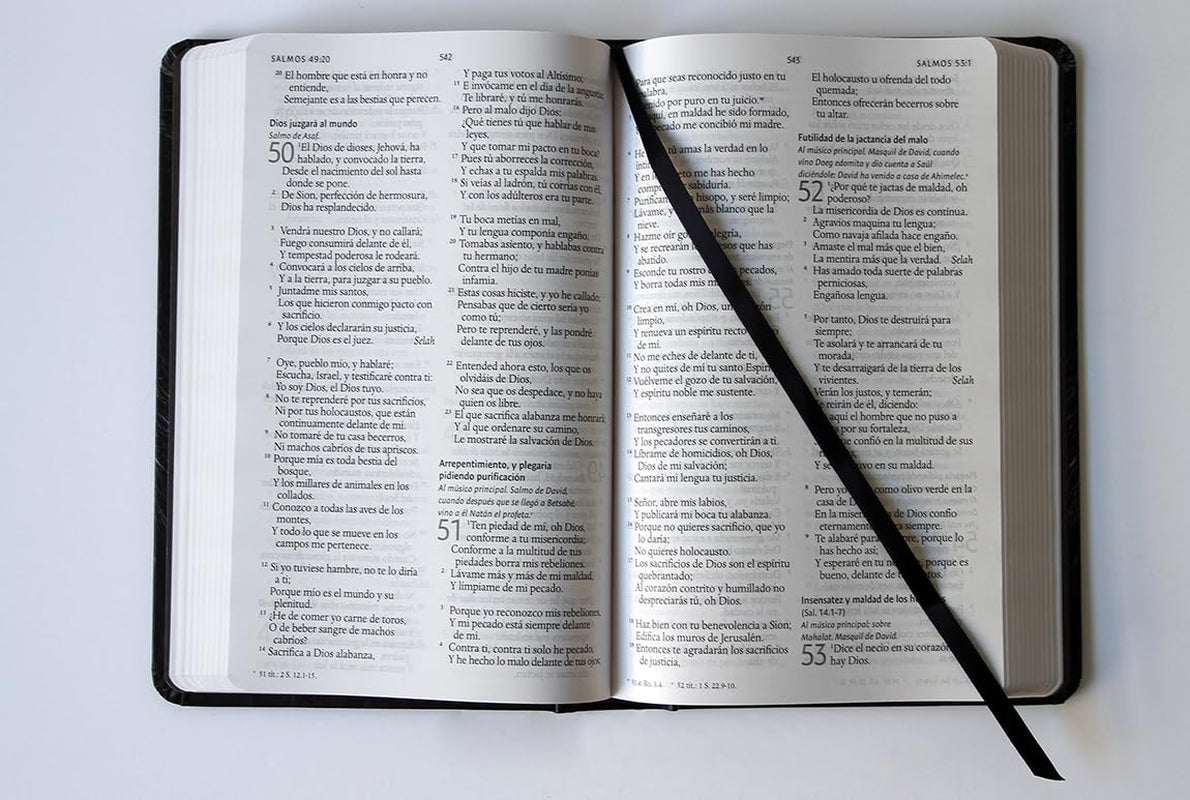 SALMOS 49:20
542
20 El hombre que está en honra y no
entiende,
Semejante es a las bestias que perecen.
Dios juzgará al mundo
Salmo de Asaf.
50 1El Dios de dioses, Jehová, ha
hablado, y convocado la tierra,
Desde el nacimiento del sol hasta
donde se pone.
2 De Sion, perfección de hermosura,
Dios ha resplandecido.
3 Vendrá nuestro Dios, y no callará;
Fuego consumirá delante de él,
Y tempestad poderosa le rodeará.
4 Convocará a los cielos de arriba,
Y a la tierra, para juzgar a su pueblo.
5 Juntadme mis santos,
Los que hicieron conmigo pacto con
sacrificio.
6 Y los cielos declararán su justicia,
Porque Dios es el juez. Selah
7 Oye, pueblo mío, y hablaré;
Escucha, Israel, y testificaré contra ti:
Yo soy Dios, el Dios tuyo.
8 No te reprenderé por tus sacrificios,
Ni por tus holocaustos, que están
continuamente delante de mí.
9 No tomaré de tu casa becerros,
Ni machos cabríos de tus apriscos.
10 Porque mía es toda bestia del
bosque,
Y los millares de animales en los
collados.
11 Conozco a todas las aves de los
montes,
Y todo lo que se mueve en los
campos me pertenece.
12 Si yo tuviese hambre, no te lo diría
a ti;
Porque mío es el mundo y su
plenitud.
13 ¿He de comer yo carne de toros,
O de beber sangre de machos
cabríos?
14 Sacrifica a Dios alabanza,
Y paga tus votos al Altísimo;
15 E invócame en el día de la angustia;
Te libraré, y tú me honrarás.
16 Pero al malo dijo Dios:
¿Qué tienes tú que hablar de mis
leyes,
Y que tomar mi pacto en tu boca?
17 Pues tú aborreces la corrección,
Y echas a tu espalda mis palabras.
18 Si veías al ladrón, tú corrías con él,
Y con los adúlteros era tu parte.
19 Tu boca metías en mal,
Y tu lengua componía engaño.
20 Tomabas asiento, y hablabas contra
tu hermano;
Contra el hijo de tu madre ponías
infamia.
21 Estas cosas hiciste, y yo he callado;
Pensabas que de cierto sería yo
como tú;
Pero te reprenderé, y las pondré
delante de tus ojos.
22 Entended ahora esto, los que os
olvidáis de Dios,
No sea que os despedace, y no haya
quien os libre.
23 El que sacrifica alabanza me honrará;
Y al que ordenare su camino,
Le mostraré la salvación de Dios.
Arrepentimiento, y plegaria
pidiendo purificación
Al músico principal. Salmo de David,
cuando después que se llegó a Betsabé,
vino a él Natán el profeta.*
51 1Ten piedad de mí, oh Dios,
conforme a tu misericordia;
Conforme a la multitud de tus
piedades borra mis rebeliones.
2 Lávame más y más de mi maldad,
Y límpiame de mi pecado.
3 Porque yo reconozco mis rebeliones,
Y mi pecado está siempre delante
de mí.
4 Contra ti, contra ti solo he pecado,
Y he hecho lo malo delante de tus ojos;
* 51 tít.: 2 S. 12.1-15.
543
SALMOS 53:1
Para que seas reconocido justo en tu
palabra,
por puro en tu juicio.*
en maldad he sido formado,
me concibió mi madre.
6 tú amas la verdad en lo
Y en me has hecho
sabiduría.
7 hisopo, y seré limpio;
Lávame, y más blanco que la
nieve.
8 Hazme oír alegría,
Y se recrearán que has
abatido.
9 Esconde tu rostro pecados,
Y borra todas mis
10 Crea en mí, oh Dios, un
limpio,
Y renueva un espíritu recto
de mí.
11 No me eches de delante de ti,
Y no quites de mí tu santo
12 Vuélveme el gozo de tu salvación,
Y espíritu noble me sustente.
13 Entonces enseñaré a los
transgresores tus caminos,
Y los pecadores se convertirán a ti.
14 Líbrame de homicidios, oh Dios,
Dios de mi salvación;
Cantará mi lengua tu justicia.
15 Señor, abre mis labios,
Y publicará mi boca tu alabanza.
16 Porque no quieres sacrificio, que yo
lo daría;
No quieres holocausto.
17 Los sacrificios de Dios son el espíritu
quebrantado;
Al corazón contrito y humillado no
despreciarás tú, oh Dios.
18 Haz bien con tu benevolencia a Sion;
Edifica los muros de Jerusalén.
19 Entonces te agradarán los sacrificios
de justicia,
El holocausto u ofrenda del todo
quemada;
Entonces ofrecerán becerros sobre
tu altar.
Futilidad de la jactancia del malo
Al músico principal. Masquil de David, cuando
vino Doeg edomita y dio cuenta a Saúl
diciéndole: David ha venido a casa de Ahimelec.*
52 1¿Por qué te jactas de maldad, oh
poderoso?
La misericordia de Dios es continua.
2 Agravios maquina tu lengua;
Como navaja afilada hace engaño.
3 Amaste el mal más que el bien,
La mentira más que la verdad. Selah
4 Has amado toda suerte de palabras
perniciosas,
Engañosa lengua.
5 Por tanto, Dios te destruirá para
siempre;
Te asolará y te arrancará de tu
morada,
Y te desarraigará de la tierra de los
vivientes. Selah
Verán los justos, y temerán;
reirán de él, diciendo:
aquí el hombre que no puso a
por su fortaleza,
confió en la multitud de sus
Y se en su maldad.
8 Pero yo como olivo verde en la
casa de
En la de Dios confío
eternamente siempre.
9 Te alabaré para porque lo
has hecho así;
Y esperaré en tu porque es
bueno, delante de
Insensatez y maldad de los
(Sal. 14.1-7)
Al músico principal; sobre
Mahalat. Masquil de David.
53 1Dice el necio en su corazón:
hay Dios.
Ro. 3.4. * 52 tít.: 1 S. 22.9-10.